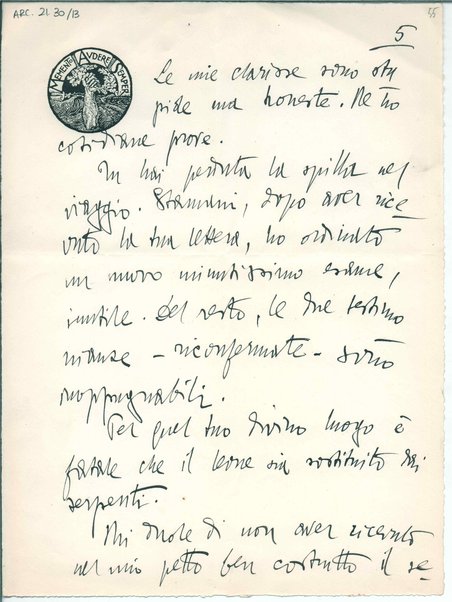 ARC. 21. 30/13
55
5
MEMENTO AVDERE SEMPER
Le mie clarisse sono stu
pide ma honeste. Ne ho
cotidiane prove.
Tu hai perduta la spilla nel
viaggio. Stamani, dopo aver rice
vuto la tua lettera, ho ordinato
un nuovo minutissimo esame,
inutile. Del resto, le due testimo
nianze – riconfermate – sono
inoppugnabili.
Per quel tuo divino luogo è
fatale che il leone sia sostituito dai
serpenti.
Mi duole di non aver ricevuto
nel mio petto ben costrutto il se